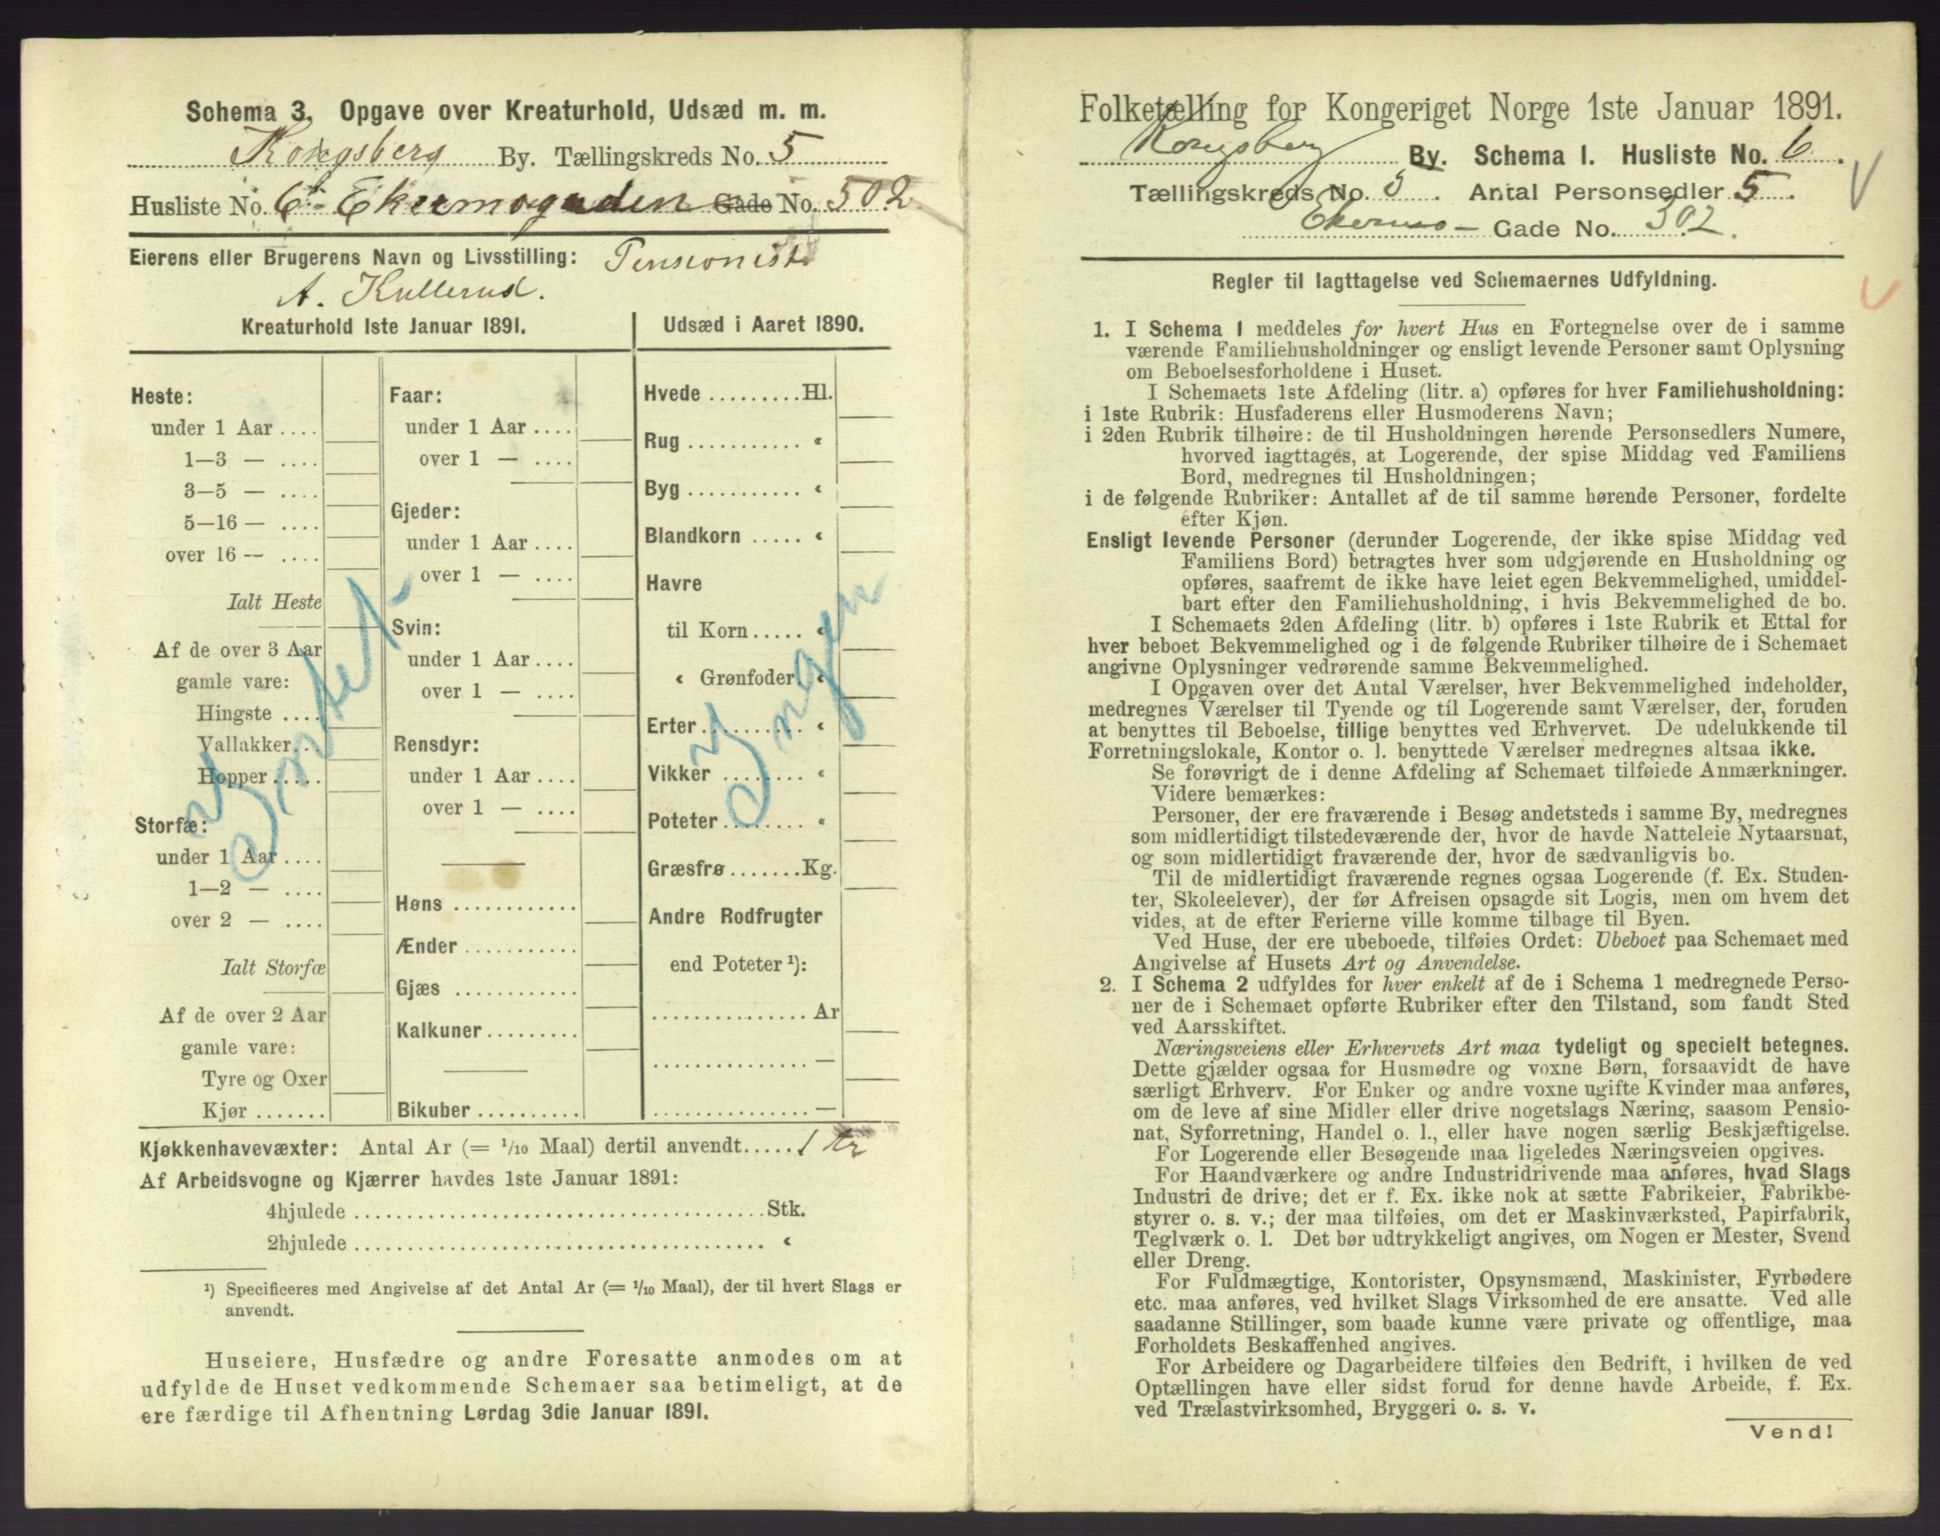 Schema 3. Opgave over Kreaturhold, Udsæd m. m.
Kongsberg By. Tællingskreds No. 5
Husliste No. 6 Ekermogaden Gade No. 502
Eierens eller Brugerens Navn og Livsstilling: Pensionist
A. Kullerud.
Kreaturhold 1ste Januar 1891.
Udsæd i Aaret 1890.
Heste:
under 1 Aar ....
1—3 — ....
3—5 — ....
5—16 — ....
over 16 — ....
Ialt Heste
Af de over 3 Aar
gamle vare:
Hingste ....
Vallakker....
Hopper .....
Storfæ:
under 1 Aar ....
1—2 — ....
over 2 — ....
Ialt Storfæ
Af de over 2 Aar
gamle vare:
Tyre og Oxer
Kjør .......
Intet
Faar:
under 1 Aar ....
over 1 — ....
Gjeder:
under 1 Aar ....
over 1 — ....
Svin:
under 1 Aar ....
over 1 — ....
Rensdyr:
under 1 Aar ....
over 1 — ....
Høns ............
Ænder ...........
Gjæs ............
Kalkuner .........
Bikuber ..........
Hvede .........Hl.
Rug ........... «
Byg ........... «
Blandkorn ..... «
Havre
til Korn ..... «
« Grønfoder «
Erter.......... «
Vikker ........ «
Poteter ........ «
Græsfrø .......Kg.
Andre Rodfrugter
end Poteter ¹):
............... Ar
............... —
............... —
Ingen
Kjøkkenhavevæxter: Antal Ar (= 1/10 Maal) dertil anvendt..... 1 Ar
Af Arbeidsvogne og Kjærrer havdes 1ste Januar 1891:
4hjulede .......................................Stk.
2hjulede ....................................... «
¹) Specificeres med Angivelse af det Antal Ar (= 1/10 Maal), der til hvert Slags er
anvendt.
Huseiere, Husfædre og andre Foresatte anmodes om at
udfylde de Huset vedkommende Schemaer saa betimeligt, at de
ere færdige til Afhentning Lørdag 3die Januar 1891.
Folketælling for Kongeriget Norge 1ste Januar 1891.
Kongsberg By. Schema I. Husliste No. 6.
Tællingskreds No. 5. Antal Personsedler 5.
Ekermo- Gade No. 302.
Regler til Iagttagelse ved Schemaernes Udfyldning.
1. I Schema 1 meddeles for hvert Hus en Fortegnelse over de i samme
værende Familiehusholdninger og ensligt levende Personer samt Oplysning
om Beboelsesforholdene i Huset.
I Schemaets 1ste Afdeling (litr. a) opføres for hver Familiehusholdning:
i 1ste Rubrik: Husfaderens eller Husmoderens Navn;
i 2den Rubrik tilhøire: de til Husholdningen hørende Personsedlers Numere,
hvorved iagttages, at Logerende, der spise Middag ved Familiens
Bord, medregnes til Husholdningen;
i de følgende Rubriker: Antallet af de til samme hørende Personer, fordelte
efter Kjøn.
Ensligt levende Personer (derunder Logerende, der ikke spise Middag ved
Familiens Bord) betragtes hver som udgjørende en Husholdning og
opføres, saafremt de ikke have leiet egen Bekvemmelighed, umiddel-
bart efter den Familiehusholdning, i hvis Bekvemmelighed de bo.
I Schemaets 2den Afdeling (litr. b) opføres i 1ste Rubrik et Ettal for
hver beboet Bekvemmelighed og i de følgende Rubriker tilhøire de i Schemaet
angivne Oplysninger vedrørende samme Bekvemmelighed.
I Opgaven over det Antal Værelser, hver Bekvemmelighed indeholder,
medregnes Værelser til Tyende og til Logerende samt Værelser, der, foruden
at benyttes til Beboelse, tillige benyttes ved Erhvervet. De udelukkende til
Forretningslokale, Kontor o. l. benyttede Værelser medregnes altsaa ikke.
Se forøvrigt de i denne Afdeling af Schemaet tilføiede Anmærkninger.
Videre bemærkes:
Personer, der ere fraværende i Besøg andetsteds i samme By, medregnes
som midlertidigt tilstedeværende der, hvor de havde Natteleie Nytaarsnat,
og som midlertidigt fraværende der, hvor de sædvanligvis bo.
Til de midlertidigt fraværende regnes ogsaa Logerende (f. Ex. Studen-
ter, Skoleelever), der før Afreisen opsagde sit Logis, men om hvem det
vides, at de efter Ferierne ville komme tilbage til Byen.
Ved Huse, der ere ubeboede, tilføies Ordet: Ubeboet paa Schemaet med
Angivelse af Husets Art og Anvendelse.
2. I Schema 2 udfyldes for hver enkelt af de i Schema 1 medregnede Perso-
ner de i Schemaet opførte Rubriker efter den Tilstand, som fandt Sted
ved Aarsskiftet.
Næringsveiens eller Erhvervets Art maa tydeligt og specielt betegnes.
Dette gjælder ogsaa for Husmødre og voxne Børn, forsaavidt de have
særligt Erhverv. For Enker og andre voxne ugifte Kvinder maa anføres,
om de leve af sine Midler eller drive nogetslags Næring, saasom Pensio-
nat, Syforretning, Handel o. l., eller have nogen særlig Beskjæftigelse.
For Logerende eller Besøgende maa ligeledes Næringsveien opgives.
For Haandværkere og andre Industridrivende maa anføres, hvad Slags
Industri de drive; det er f. Ex. ikke nok at sætte Fabrikeier, Fabrikbe-
styrer o. s. v.; der maa tilføies, om det er Maskinværksted, Papirfabrik,
Teglværk o. l. Det bør udtrykkeligt angives, om Nogen er Mester, Svend
eller Dreng.
For Fuldmægtige, Kontorister, Opsynsmænd, Maskinister, Fyrbødere
etc. maa anføres, ved hvilket Slags Virksomhed de ere ansatte. Ved alle
saadanne Stillinger, som baade kunne være private og offentlige, maa
Forholdets Beskaffenhed angives.
For Arbeidere og Dagarbeidere tilføies den Bedrift, i hvilken de ved
Optællingen have eller sidst forud for denne havde Arbeide, f. Ex.
ved Trælastvirksomhed, Bryggeri o. s. v.
Vend!